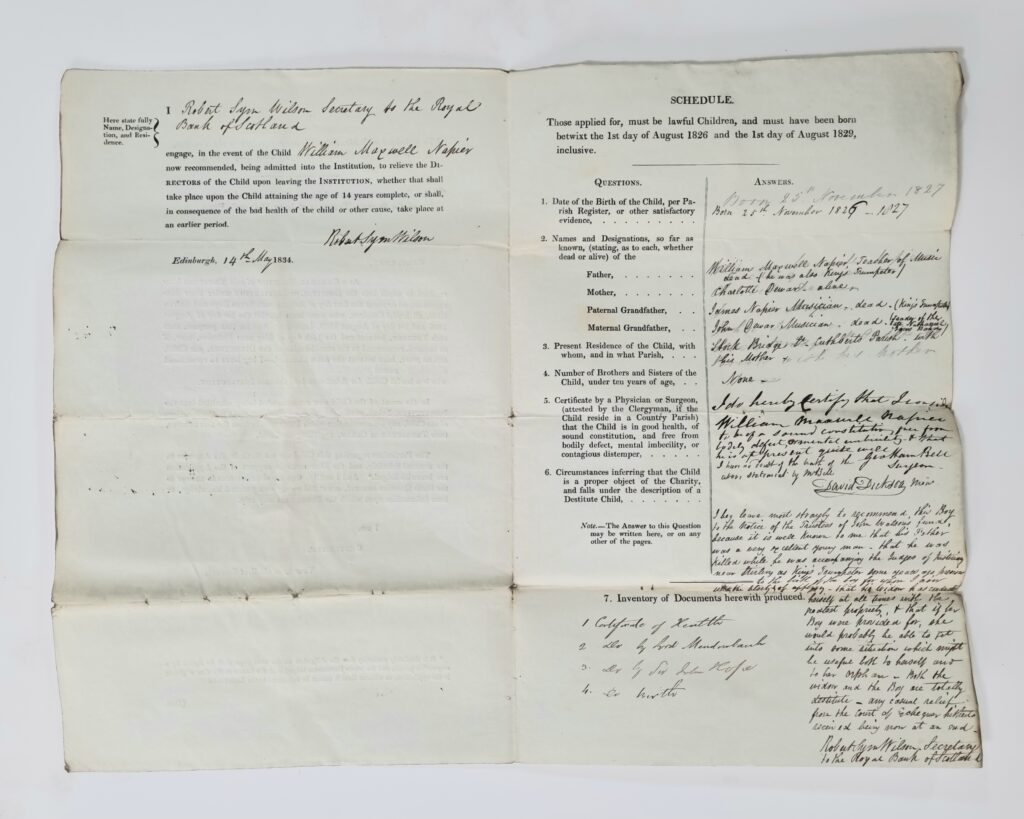 Here state fully
Name, Designa-
tion, and Resi-
dence.
I Robert Sym Wilson Secretary to the Royal
Bank of Scotland
engage, in the event of the Child William Maxwell Napier
now recommended, being admitted into the Institution, to relieve the DI-
RECTORS of the Child upon leaving the INSTITUTION, whether that shall
take place upon the Child attaining the age of 14 years complete, or shall,
in consequence of the bad health of the child or other cause, take place at
an earlier period.
Robert Sym Wilson
Edinburgh, 14th May 1834.
SCHEDULE.
Those applied for, must be lawful Children, and must have been born
betwixt the 1st day of August 1826 and the 1st day of August 1829,
inclusive.
QUESTIONS.
ANSWERS.
1. Date of the Birth of the Child, per Pa-
rish Register, or other satisfactory
evidence, . . . . . . . . .
Born 25th November 1827
Born 25th November 1826 - 1827
2. Names and Designations, so far as
known, (stating, as to each, whether
dead or alive) of the
Father, . . . . . . .
William Maxwell Napier, Teacher of Music
dead (he was also King's Trumpeter)
Mother, . . . . . . .
Charlotte Dewar - alive
Paternal Grandfather, . . .
James Napier Musician - dead - (King's Trumpeter)
Maternal Grandfather, . . .
John Dewar Musician - dead - of the
3. Present Residence of the Child, with
whom, and in what Parish, . . .
Stock Bridge St. Cuthberts Parish - with
his Mother with his mother
4. Number of Brothers and Sisters of the
Child, under ten years of age, . .
None -
5. Certificate by a Physician or Surgeon,
(attested by the Clergyman, if the
Child reside in a Country Parish)
that the Child is in good health, of
sound constitution, and free from
bodily defect, mental imbecility, or
contagious distemper, . . . . .
I do hereby certify that I
William Maxwell Napier
to be of a sound constitution, free from
bodily defect or mental imbecility & that
he is at present quite well
Geo Ham Bell
I have no doubt of the truth of the Surgeon
above statement by Mr Bell
David Dickson Minr
6. Circumstances inferring that the Child
is a proper object of the Charity,
and falls under the description of a
Destitute Child, . . . . . . .
Note.—The Answer to this Question
may be written here, or on any
other of the pages.
I beg leave most strongly to recommend this Boy
to the Notice of the Trustees of John Watson's fund,
because it is well known to me that his Father
was a very excellent young man - that he was
killed while he was accompanying the Judges of Justiciary
near Stirling as King's Trumpeter some years ago
to the birth of the boy for whom I now
- that his widow has conducted
herself at all times with the
modest propriety, & that if her
Boy were provided for, she
would probably be able to get
into some situation which might
be useful both to herself and
to her orphan - Both the
widow and the Boy are totally
destitute - any casual relief
from the Court of Exchequer hitherto
received being now at an end -
Robert Sym Wilson, Secretary
to the Royal Bank of Scotland
7. Inventory of Documents herewith produced.
1 Certificate of Health
2 Do by Lord Meadowbank
3 Do by Sir John Hope
4. Do birth